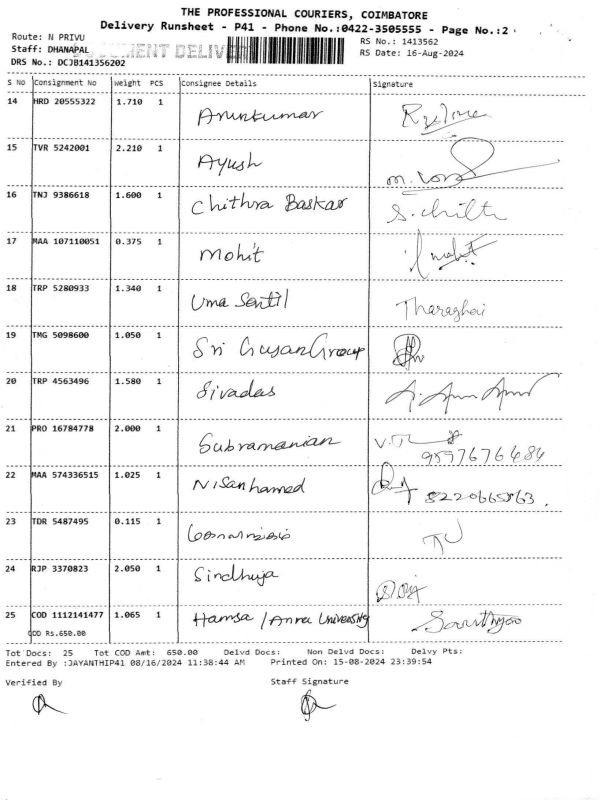 THE PROFESSIONAL COURIERS, COIMBATORE
Delivery Runsheet - P41 - Phone No.:0422-3505555 - Page No.:2
Route: N PRIVU
RS No.: 1413562
Staff: DHANAPAL
DOCUMENT DELIVE
RS Date: 16-Aug-2024
DRS No.: DCJB141356202
S No Consignment No Weight PCS Consignee Details Signature
14 HRD 20555322 1.710 1 Arunkumar
15 TVR 5242001 2.210 1 Ayush
16 TNJ 9386618 1.600 1 Chithra Baskar S. chilt
17 MAA 107110051 0.375 1 Mohit
18 TRP 5280933 1.340 1 Uma Sentil Tharaghai
19 TMG 5098600 1.050 1 Sri Gugan Group
20 TRP 4563496 1.580 1 Sivadas
21 PRO 16784778 2.000 1 Subramanian
9597676484
22 MAA 574336515 1.025 1 Nisanhamed
23 TDR 5487495 0.115 1
24 RJP 3370823 2.050 1 Sindhuja
25 COD 1112141477 1.065 1 Hamsa / Anna University
COD Rs.650.00
Tot Docs: 25 Tot COD Amt: 650.00 Delvd Docs: Non Delvd Docs: Delvy Pts:
Entered By :JAYANTHIP41 08/16/2024 11:38:44 AM Printed On: 15-08-2024 23:39:54
Verified By Staff Signature